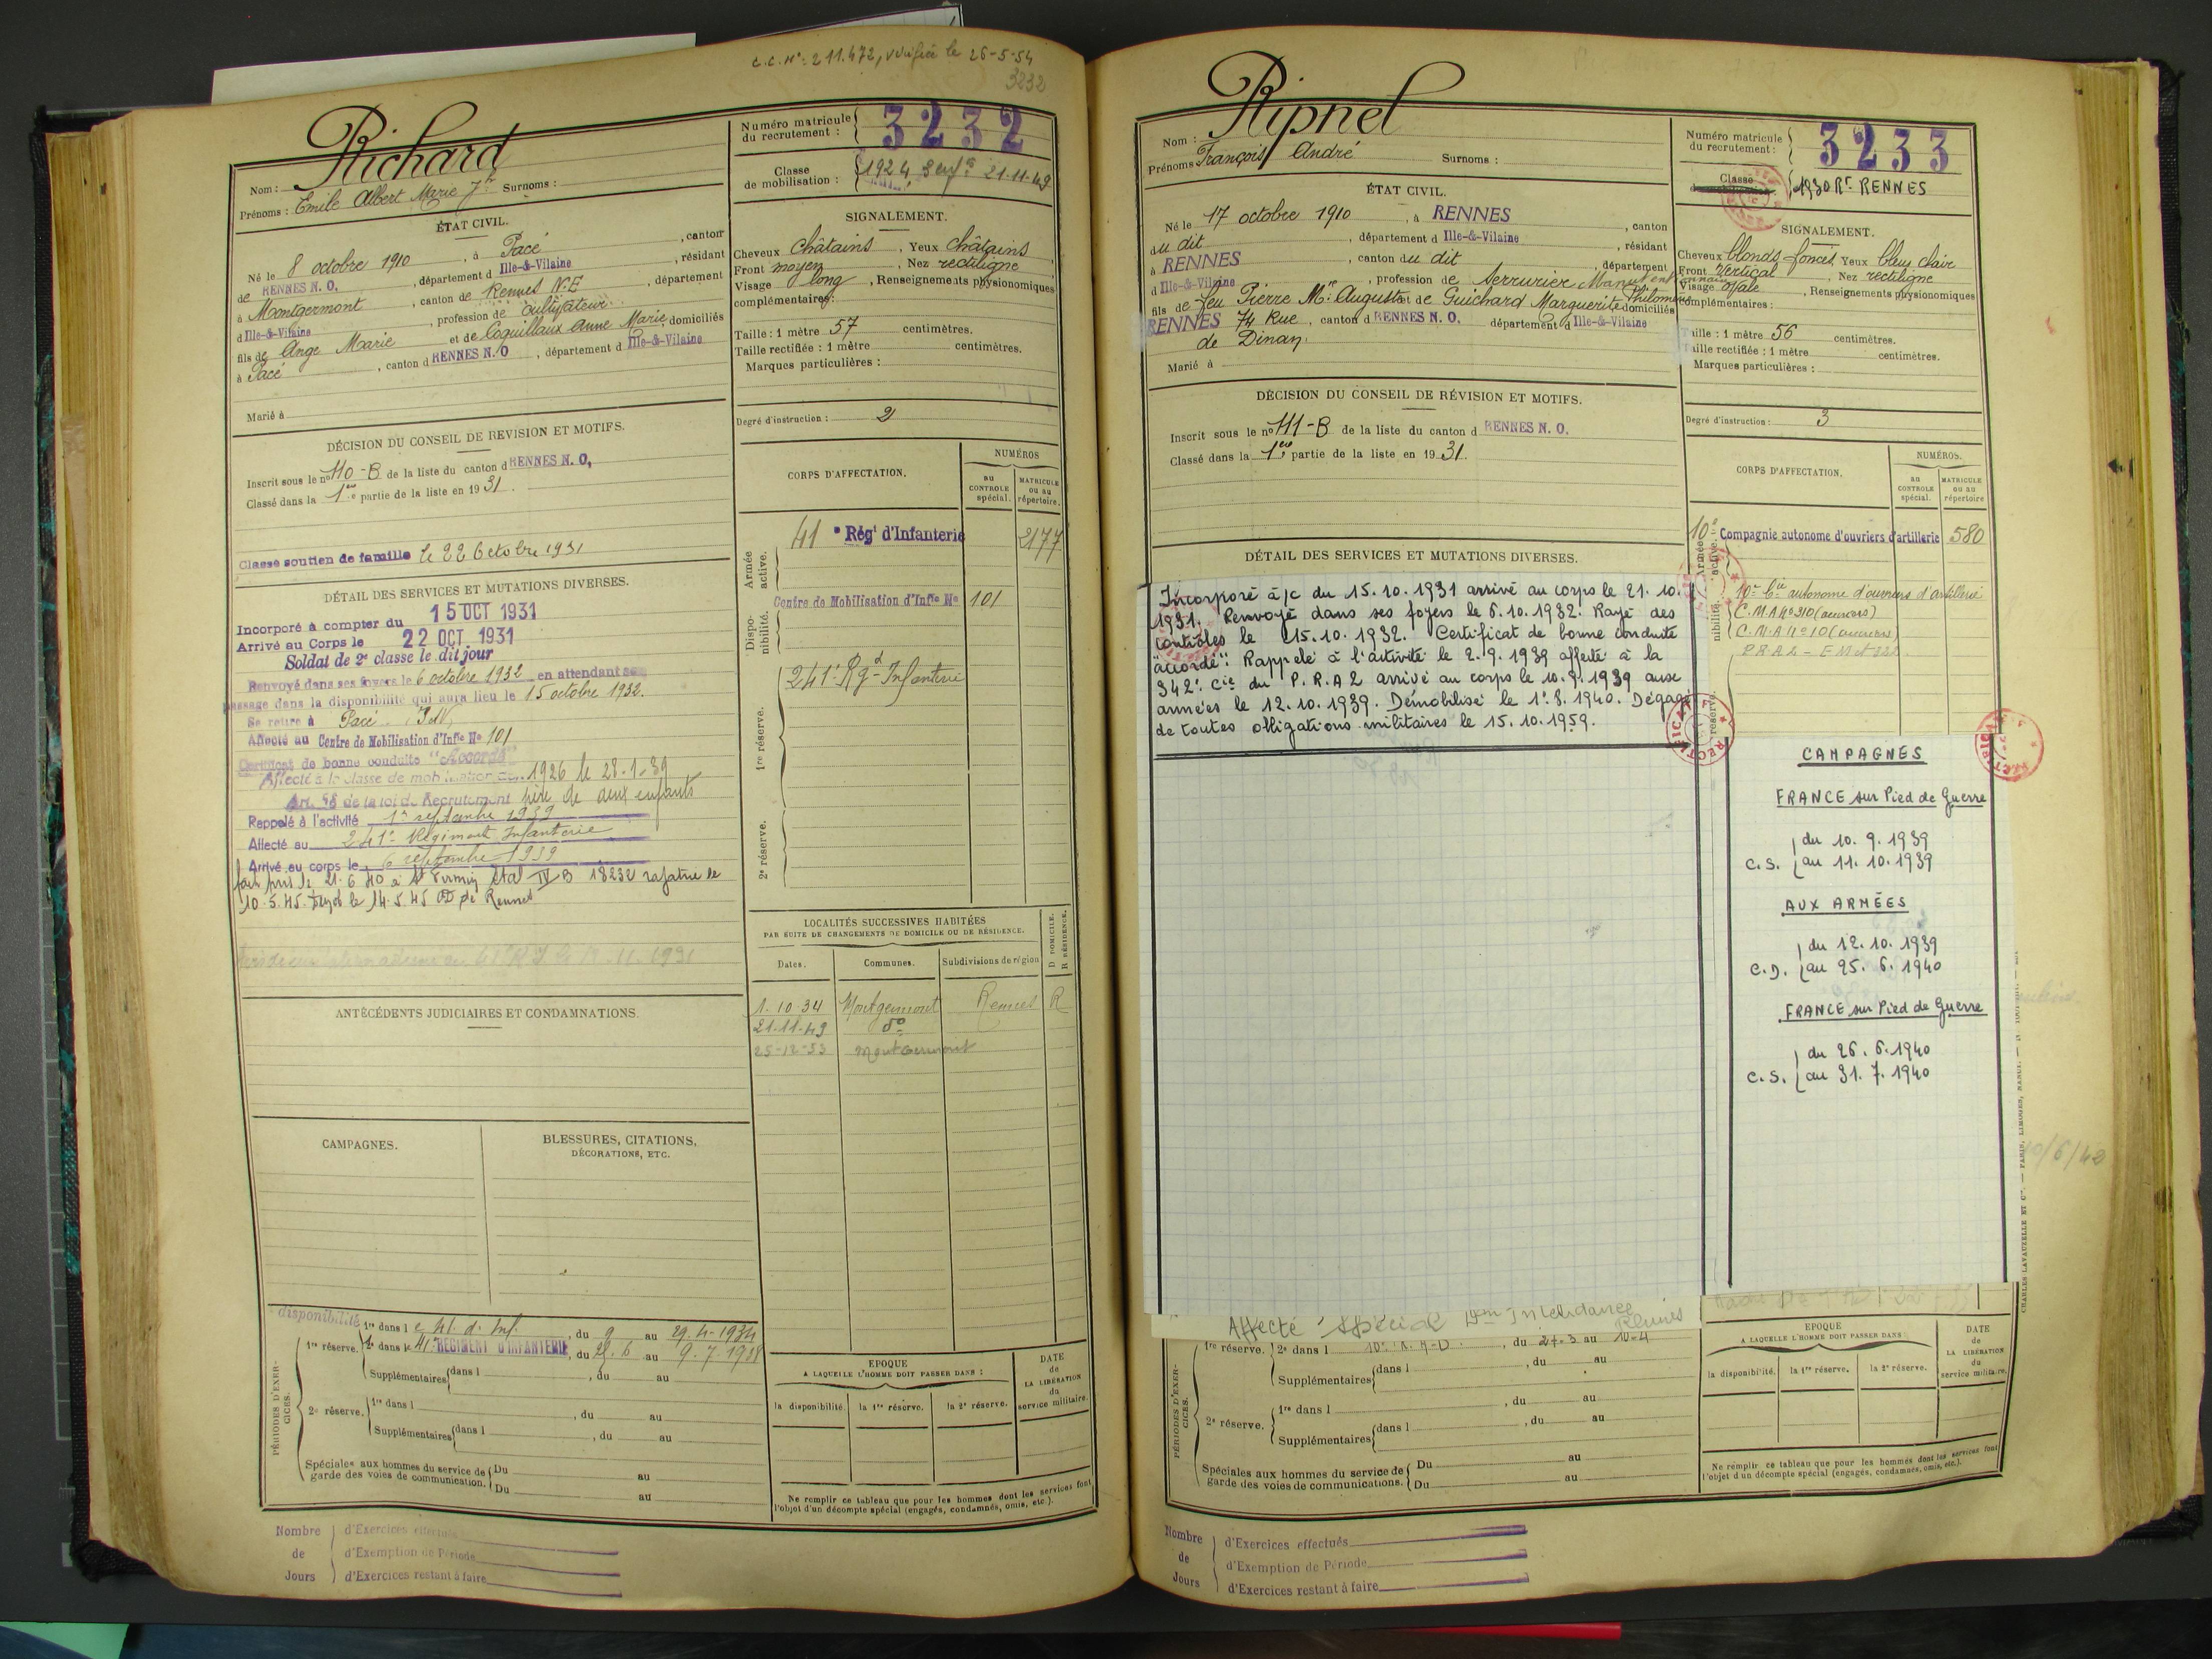 C.C. N°: 211.472, vérifié le 26-5-54
3232
Richard
Nom :
Prénoms : Emile Albert Marie Jh Surnoms :
Numéro matricule du recrutement : 3232
Classe de mobilisation : 1924, 3 enfts 21.11.49
ÉTAT CIVIL.
Né le 8 octobre 1910, à Pacé, canton
de RENNES N. O., département d Ille-&-Vilaine, résidant
à Montgermont, canton de Rennes N.E, département
d Ille-&-Vilaine, profession de cultivateur
fils de Ange Marie et de Coquillaux Anne Marie, domiciliés
à Pacé, canton d RENNES N. O, département d Ille-&-Vilaine
Marié à
SIGNALEMENT.
Cheveux châtains, Yeux châtains
Front moyen, Nez rectiligne
Visage long, Renseignements physionomiques
complémentaires:
Taille : 1 mètre 57 centimètres.
Taille rectifiée : 1 mètre centimètres.
Marques particulières :
Degré d'instruction : 2
DÉCISION DU CONSEIL DE REVISION ET MOTIFS.
Inscrit sous le n° 110-B de la liste du canton d RENNES N. O,
Classé dans la 1re partie de la liste en 1931.
Classé soutien de famille le 22 Octobre 1931
DÉTAIL DES SERVICES ET MUTATIONS DIVERSES.
Incorporé à compter du 15 OCT 1931
Arrivé au Corps le 22 OCT. 1931
Soldat de 2e classe le dit jour
Renvoyé dans ses foyers le 6 octobre 1932 en attendant son
passage dans la disponibilité qui aura lieu le 15 octobre 1932.
Se retire à Pacé I&V
Affecté au Centre de Mobilisation d'Inftie No 101
Certificat de bonne conduite "Accordé"
Affecté à la classe de mobilisation de 1926 le 28-1-39
Art. 58 de la loi de Recrutement père de deux enfants
Rappelé à l'activité 1er septembre 1939
Affecté au 241e Régiment Infanterie
Arrivé au corps le 6 septembre 1939
fait pris le 21.6.40 à St Firmin Stal IV B 18232 rapatrié le
10.5.45. le 14.5.45 de Rennes
ANTÉCÉDENTS JUDICIAIRES ET CONDAMNATIONS.
CAMPAGNES.
BLESSURES, CITATIONS,
DÉCORATIONS, ETC.
CORPS D'AFFECTATION.
NUMÉROS
au CONTROLE spécial.
MATRICULE ou au répertoire.
Armée active.
41e Régt d'Infanterie 2177
Dispo-nibilité.
Centre de Mobilisation d'Inftie No 101
1re réserve.
241e Rgt d'Infanterie
2e réserve.
LOCALITÉS SUCCESSIVES HABITÉES
PAR SUITE DE CHANGEMENTS DE DOMICILE OU DE RÉSIDENCE.
D DOMICILE.
R RÉSIDENCE.
Dates. Communes. Subdivisions de région
1.10.34 Montgermont Rennes R
21.11.49 do
25-12-53 Montgermont
PÉRIODES D'EXERCICES.
disponibilité
1re réserve.
1re dans l e 41 d. Inf., du 9 au 29.4-1934
2e dans le 41e REGIMENT D'INFANTERIE, du 6 au 9.7.1938
Supplémentaires dans l , du au
, du au
2e réserve.
1re dans l , du au
Supplémentaires dans l , du au
Spéciales aux hommes du service de garde des voies de communication.
Du au
Du au
EPOQUE
A LAQUELLE L'HOMME DOIT PASSER DANS :
la disponibilité. la 1re réserve. la 2e réserve.
DATE de LA LIBÉRATION du service militaire.
Ne remplir ce tableau que pour les hommes dont les services font
l'objet d'un décompte spécial (engagés, condamnés, omis, etc.).
Nombre de Jours
d'Exercices effectués
d'Exemption de Période
d'Exercices restant à faire
Ripnel
Nom :
Prénoms François André Surnoms :
Numéro matricule du recrutement : 3233
Classe
1930 Rt RENNES
ÉTAT CIVIL.
Né le 17 octobre 1910, à RENNES, canton
du dit, département d Ille-&-Vilaine, résidant
à RENNES, canton du dit, département
d Ille-&-Vilaine, profession de serrurier
fils de feu Pierre Mie Auguste et de Guichard Marguerite Philomène domiciliés
RENNES 74 Rue, canton d RENNES N. O. département d Ille-&-Vilaine
de Dinan.
Marié à
SIGNALEMENT.
Cheveux blonds foncés Yeux bleu clair
Front vertical, Nez rectiligne
Visage ovale, Renseignements physionomiques
complémentaires :
Taille : 1 mètre 56 centimètres.
Taille rectifiée : 1 mètre centimètres.
Marques particulières :
Degré d'instruction : 3
DÉCISION DU CONSEIL DE RÉVISION ET MOTIFS.
Inscrit sous le n° 111-B de la liste du canton d RENNES N. O.
Classé dans la 1re partie de la liste en 1931.
DÉTAIL DES SERVICES ET MUTATIONS DIVERSES.
Incorporé à/c du 15.10.1931 arrivé au corps le 21.10.
1931. Renvoyé dans ses foyers le 6.10.1932. Rayé des
contrôles le 15.10.1932. Certificat de bonne conduite
"accordé". Rappelé à l'activité le 2.9.1939 affecté à la
342e Cie du P.R.A 2 arrivé au corps le 10.9.1939 aux
armées le 12.10.1939. Démobilisé le 1er.8.1940. Dégagé
de toutes obligations militaires le 15.10.1959.
CORPS D'AFFECTATION.
NUMÉROS.
au CONTROLE spécial.
MATRICULE ou au répertoire
Armée active.
10e Compagnie autonome d'ouvriers d'artillerie 580
nibilité.
10e Cie autonome d'ouvriers d'artillerie
C.M.A N° 310 (ouvriers)
C.M.A N° 10 (ouvriers)
réserve
CAMPAGNES
FRANCE sur Pied de Guerre
C.S. du 10.9.1939
au 11.10.1939
AUX ARMÉES
C.D. du 12.10.1939
au 25.6.1940
FRANCE sur Pied de Guerre
C.S. du 26.6.1940
au 31.7.1940
10/6/42
Affecté spécial Intendance
Rennes
PÉRIODES D'EXERCICES.
1re réserve. 2e dans l , du 27-3 au 10-4
Supplémentaires dans l , du au
, du au
2e réserve.
1re dans l , du au
Supplémentaires dans l , du au
Spéciales aux hommes du service de garde des voies de communications.
Du au
Du au
EPOQUE
A LAQUELLE L'HOMME DOIT PASSER DANS :
la disponibilité. la 1re réserve. la 2e réserve.
DATE de LA LIBÉRATION du service militaire.
Ne remplir ce tableau que pour les hommes dont les services font
l'objet d'un décompte spécial (engagés, condamnés, omis, etc.).
Nombre de Jours
d'Exercices effectués
d'Exemption de Période
d'Exercices restant à faire